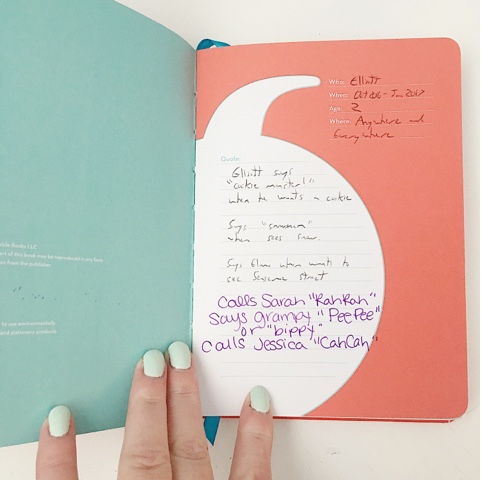 Who: Elliott
When: Oct 2016 - Jan 2017
Age: 2
Where: Anywhere and
Everywhere
Quote:
Elliott says
"cookie monster!"
when he wants a cookie
Says "snowman"
when sees snow.
Says Elmo when wants to
see Sesame Street
Calls Sarah "RahRah"
Says grampy "PeePee"
or "bippy"
Calls Jessica "CahCah"
Books LLC
art of this book may be reproduced in any form
from the publisher
to use environmentally
and stationery standards